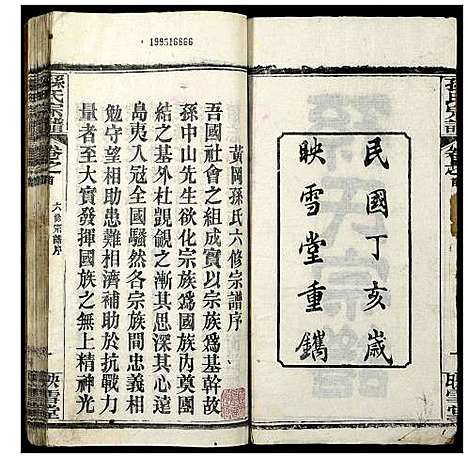 民國丁亥歲
映雪堂重鐫
黃岡孫氏六修宗譜序
吾國社會之組成實以宗族爲基幹故
孫中山先生欲化宗族爲國族內奠團
結之基外杜覬覦之漸其思深其心遠
島夷入寇全國騷然各宗族間忠義相
勉守望相助患難相濟補助於抗戰力
量者至大實發揮國族之無上精神光
孫氏宗譜
卷之首
六修宗譜序
一
映雪堂
199316666